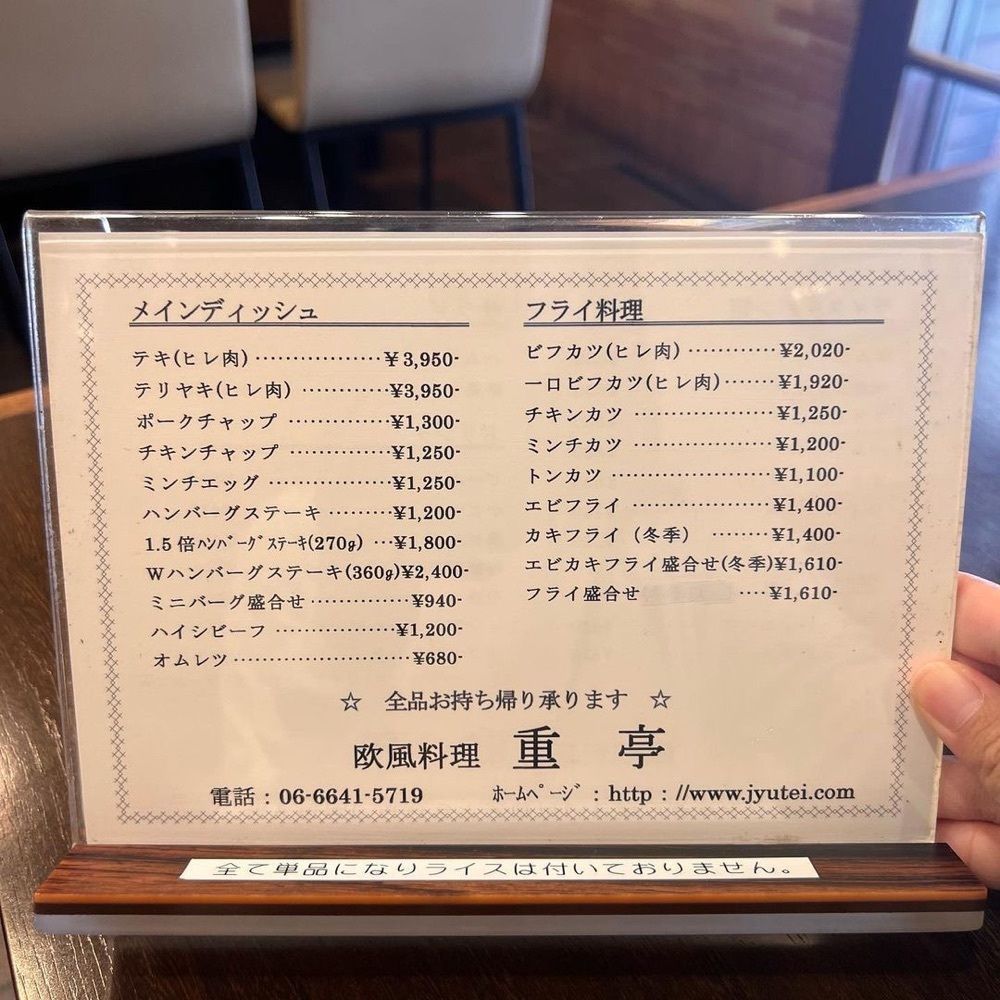 メインディッシュ
テキ(ヒレ肉) ················¥3,950-
テリヤキ(ヒレ肉) ············¥3,950-
ポークチャップ ··············¥1,300-
チキンチャップ ··············¥1,250-
ミンチエッグ ·················¥1,250-
ハンバーグステーキ ·········¥1,200-
1.5倍ﾊﾝﾊﾞｰｸﾞｽﾃｰｷ(270g) ···¥1,800-
Wハンバーグステーキ(360g)¥2,400-
ミニバーグ盛合せ ·············¥940-
ハイシビーフ ················¥1,200-
オムレツ ························¥680-
フライ料理
ビフカツ(ヒレ肉) ············¥2,020-
一口ビフカツ(ヒレ肉) ·······¥1,920-
チキンカツ ···················¥1,250-
ミンチカツ ···················¥1,200-
トンカツ ······················¥1,100-
エビフライ ···················¥1,400-
カキフライ（冬季） ········¥1,400-
エビカキフライ盛合せ(冬季)¥1,610-
フライ盛合せ ····¥1,610-
☆ 全品お持ち帰り承ります ☆
欧風料理 重 亭
電話：06-6641-5719 ﾎｰﾑﾍﾟｰｼﾞ：http：//www.jyutei.com
全て単品になりライスは付いておりません。